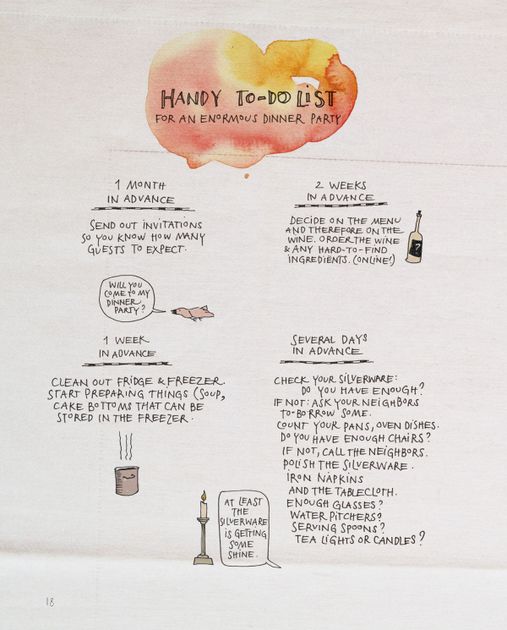 HANDY TO-DO LIST
FOR AN ENORMOUS DINNER PARTY
1 MONTH
IN ADVANCE
SEND OUT INVITATIONS
SO YOU KNOW HOW MANY
GUESTS TO EXPECT.
WILL YOU
COME TO MY
DINNER
PARTY?
2 WEEKS
IN ADVANCE
DECIDE ON THE MENU
AND THEREFORE ON THE
WINE. ORDER THE WINE
& ANY HARD-TO-FIND
INGREDIENTS. (ONLINE!)
?
1 WEEK
IN ADVANCE
CLEAN OUT FRIDGE & FREEZER.
START PREPARING THINGS (SOUP,
CAKE BOTTOMS THAT CAN BE
STORED IN THE FREEZER.
SEVERAL DAYS
IN ADVANCE
CHECK YOUR SILVERWARE:
DO YOU HAVE ENOUGH?
IF NOT: ASK YOUR NEIGHBORS
TO BORROW SOME.
COUNT YOUR PANS, OVEN DISHES.
DO YOU HAVE ENOUGH CHAIRS?
IF NOT, CALL THE NEIGHBORS.
POLISH THE SILVERWARE.
IRON NAPKINS
AND THE TABLECLOTH.
ENOUGH GLASSES?
WATER PITCHERS?
SERVING SPOONS?
TEA LIGHTS OR CANDLES?
AT LEAST
THE
SILVERWARE
IS GETTING
SOME
SHINE.
18